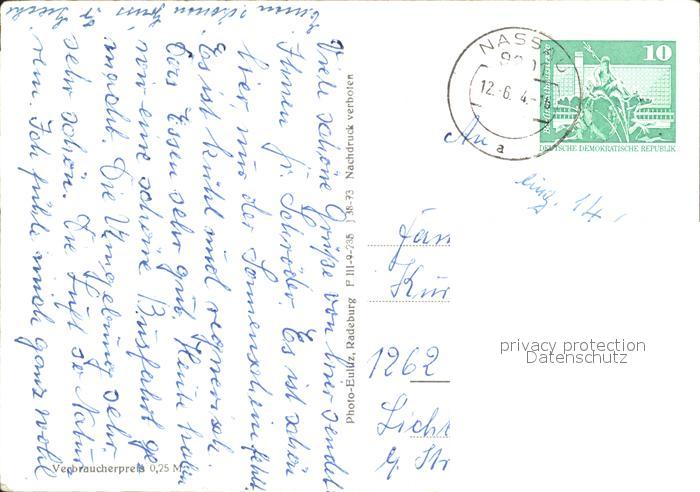 Viele schöne Grüße von hier sendet
Ihnen Fr. Schröder. Es ist schön
hier, nur der Sonnenschein fehlt.
Es ist kühl und regnerisch.
Das Essen sehr gut. Heute haben
wir eine schöne Busfahrt ge
macht. Die Umgebung sehr
sehr schön. Die Luft so Natur
rein. Ich fühle mich ganz wohl
Einen schönen Gruss
Verbraucherpreis 0,25 M
Photo-Eulitz, Radeburg F III-9-235 J 38-73 Nachdruck verboten
NASSAU
12.-6. 4.-16
a
10
DEUTSCHE DEMOKRATISCHE REPUBLIK
An
eing. 14.
Fam
Kur
1262
Licht
g. Str
privacy protection
Datenschutz